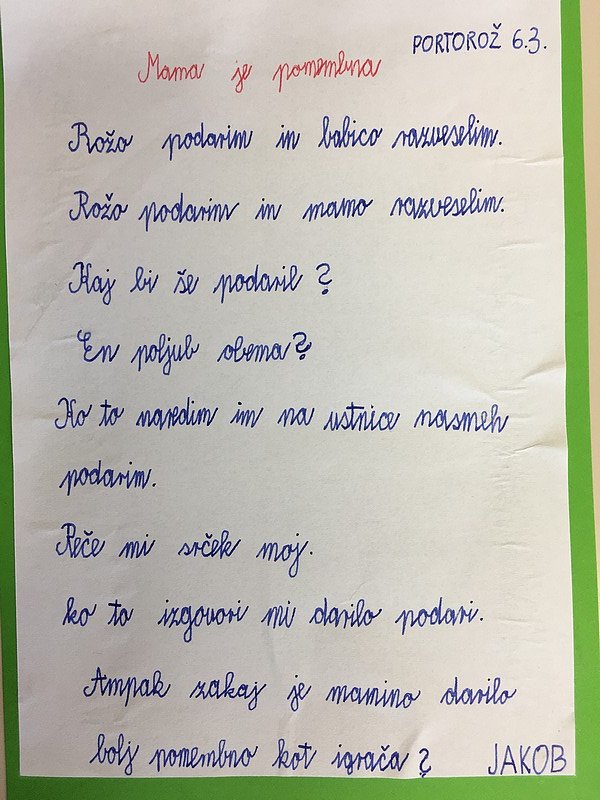 PORTOROŽ 6.3.
Mama je pomembna
Rožo podarim in babico razveselim.
Rožo podarim in mamo razveselim.
Kaj bi še podaril?
En poljub obema?
Ko to naredim im na ustnice nasmeh
podarim.
Reče mi srček moj.
ko to izgovori mi darilo podari.
Ampak zakaj je mamino darilo
bolj pomembno kot igrača?
JAKOB